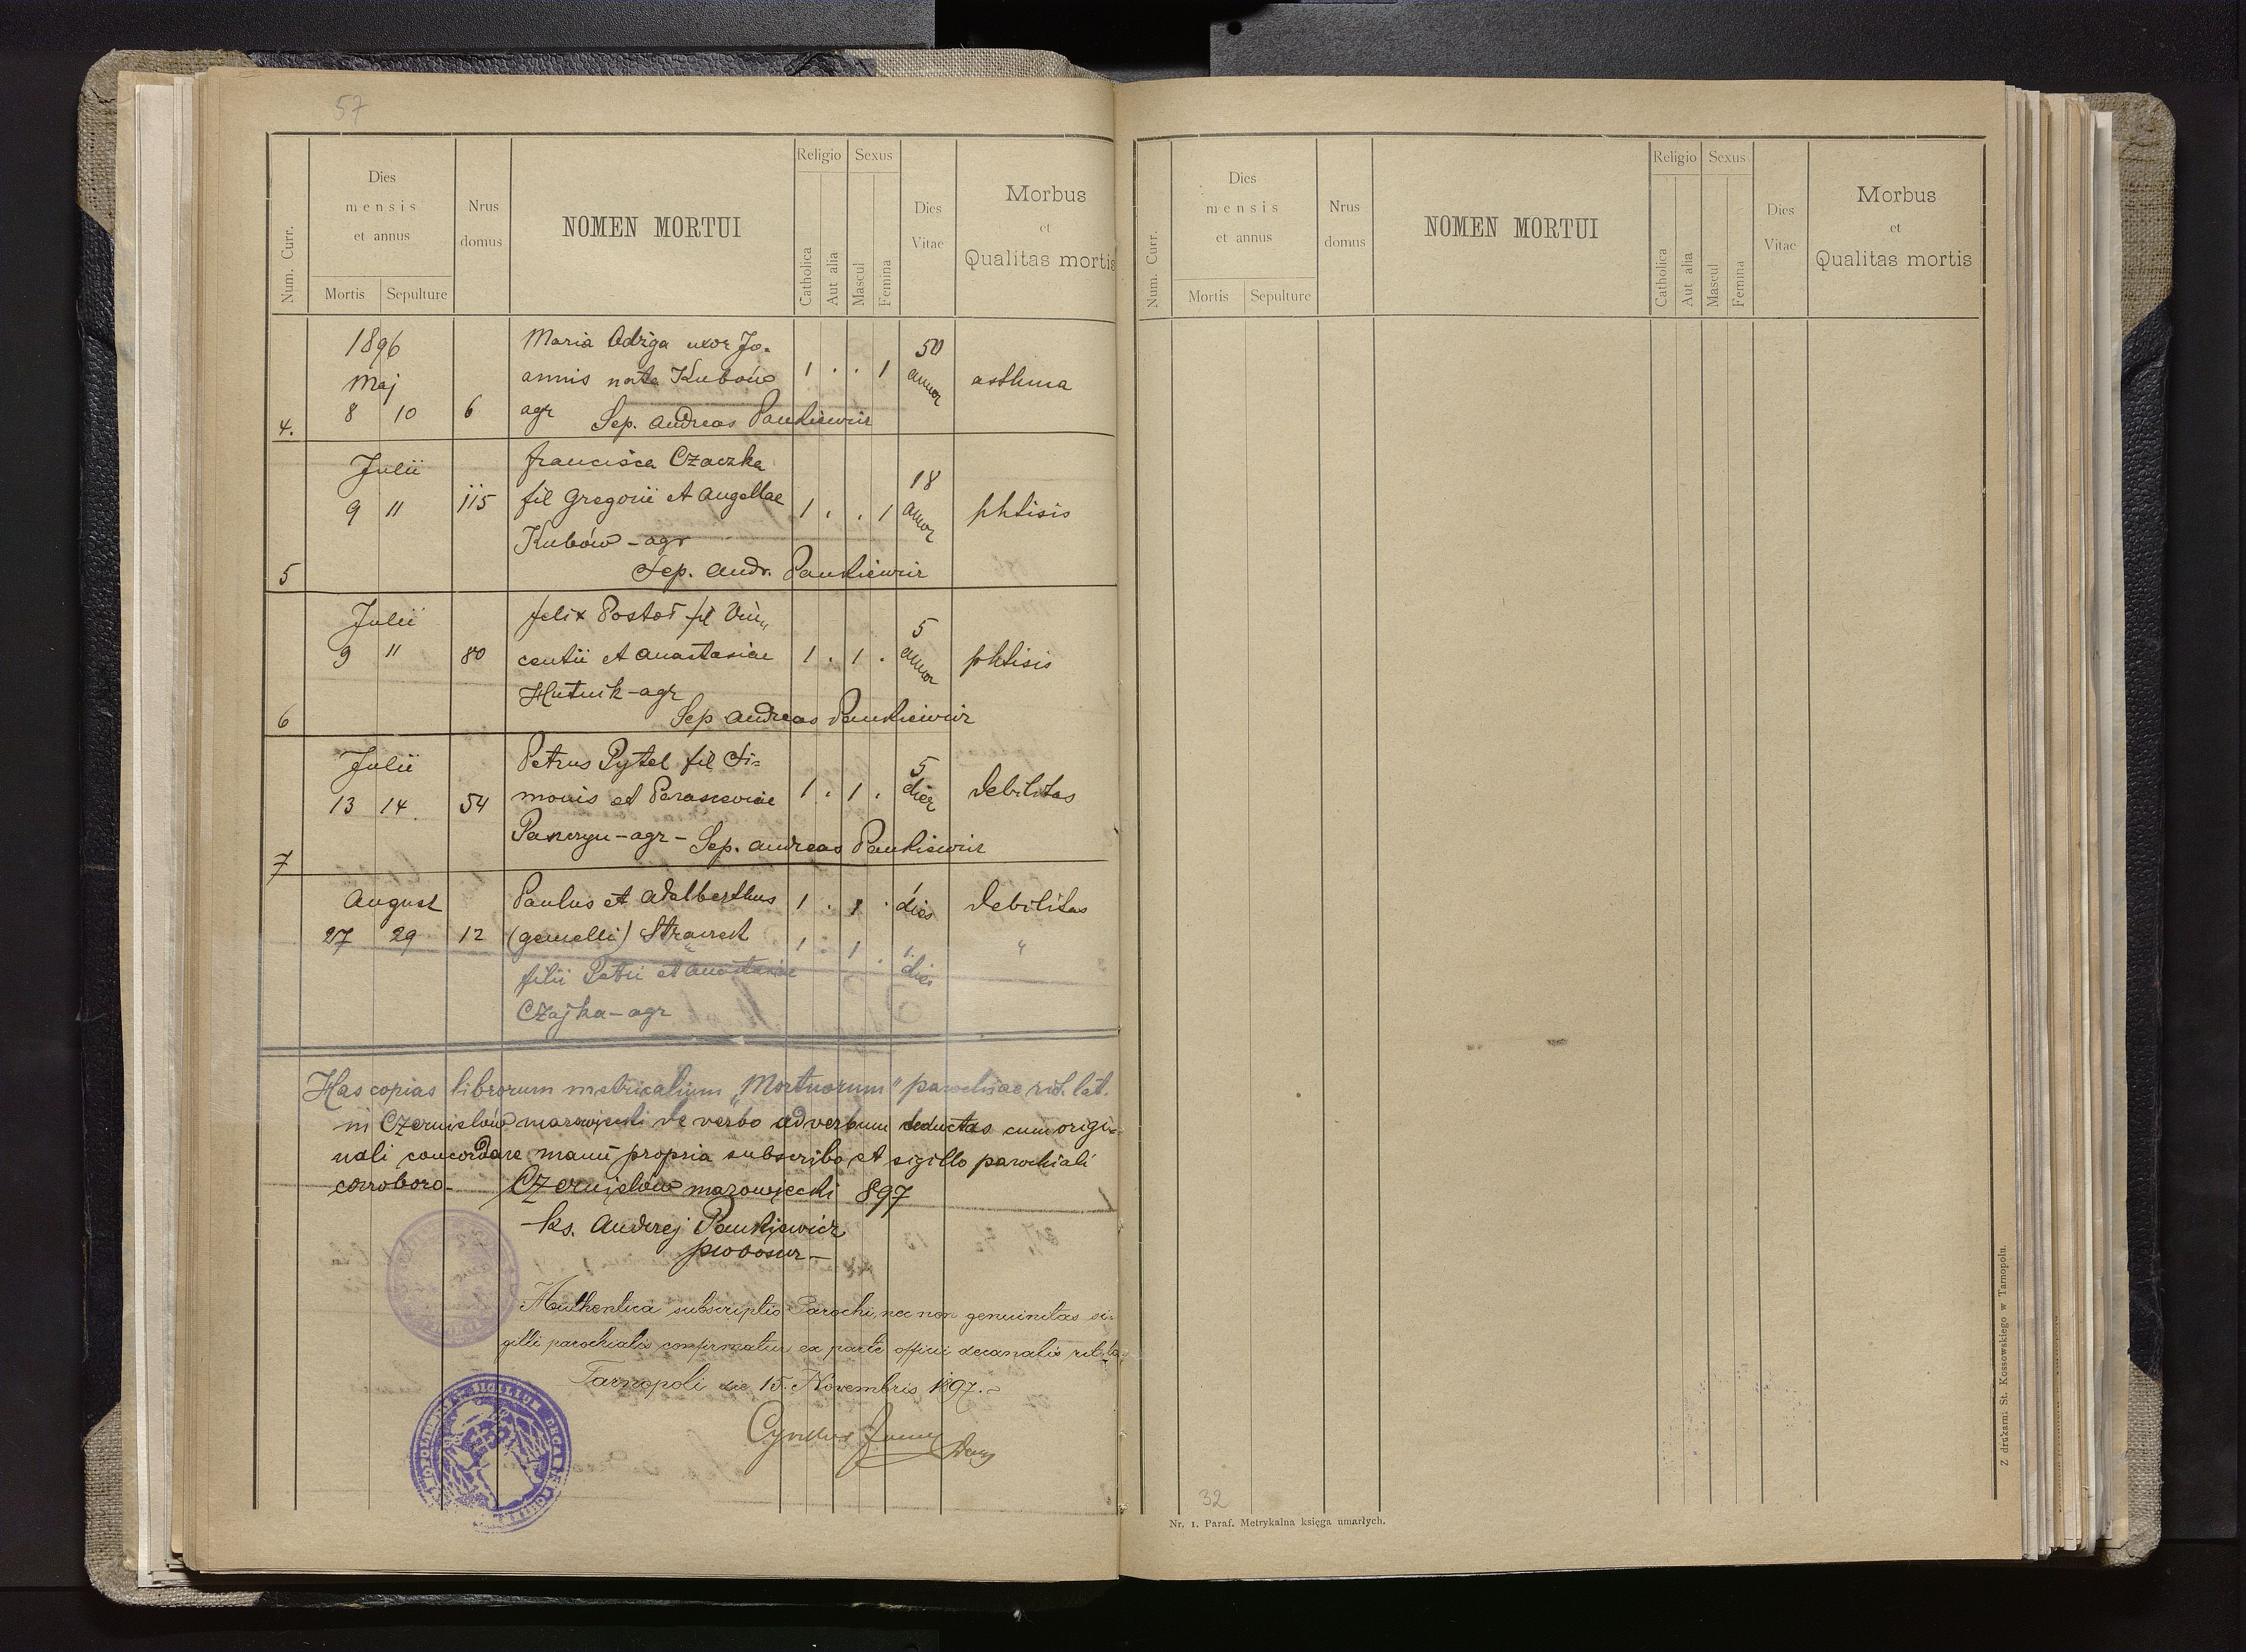 57
Num. Curr.
Dies
mensis
et annus
Mortis Sepulture
Nrus
domus
NOMEN MORTUI
Religio Sexus
Catholica
Aut alia
Mascul
Femina
Dies
Vitae
Morbus
et
Qualitas mortis
1896
Maj
4. 8 10 6
Maria Odziga uxor Jo-
annis nata Kubów
agr Sep. Andreas Pankiewicz
1 . . 1 50 annor asthma
Julii
5 9 11 115
Francisca Czaczka
fil Gregorii et Angellae
Kubów - agr
Sep. Andr. Pankiewicz
1 . . 1 18 annor phtisis
Julii
6 9 11 80
Felix Postoł fil Vin„
centii et Anastasiae
Hutnik - agr
Sep Andreas Pankiewicz
1 . 1 . 5 annor phtisis
Julii
7 13 14. 54
Petrus Pytel fil Si=
monis et Parasceviae
agr - Sep. Andreas Pankiewicz
1 . 1 . 5 dier debilitas
August
27 29 12
Paulus et Adalberthus
(gemelli)
filii Petri et Anastasiae
Czajka - agr
1 . 1 . dies debilitas
1 : 1 . 1. dies "
Has copias librorum metricalium „Mortuorum" parochiae rit. lat.
in Czernielów mazowiecki de verbo ad verbum deductas cum origi=
nali concordare manu propria subscribo et sigillo parochiali
corroboro - Czernielów mazowiecki 897
ks. Andrzej Pankiewicz
proboszcz -
Authentica subscriptio Parochi, nec non genuinitas si-
gilli parochialis confirmatur ex parte officii decanalis rit. la
Tarnopoli die 15. Novembris 1897.
SIGILLUM DECANI
Num. Curr.
Dies
mensis
et annus
Mortis Sepulture
Nrus
domus
NOMEN MORTUI
Religio Sexus
Catholica
Aut alia
Mascul
Femina
Dies
Vitae
Morbus
et
Qualitas mortis
32
Nr. 1. Paraf. Metrykalna księga umarłych.
Z drukarni St. Kossowskiego w Tarnopolu.